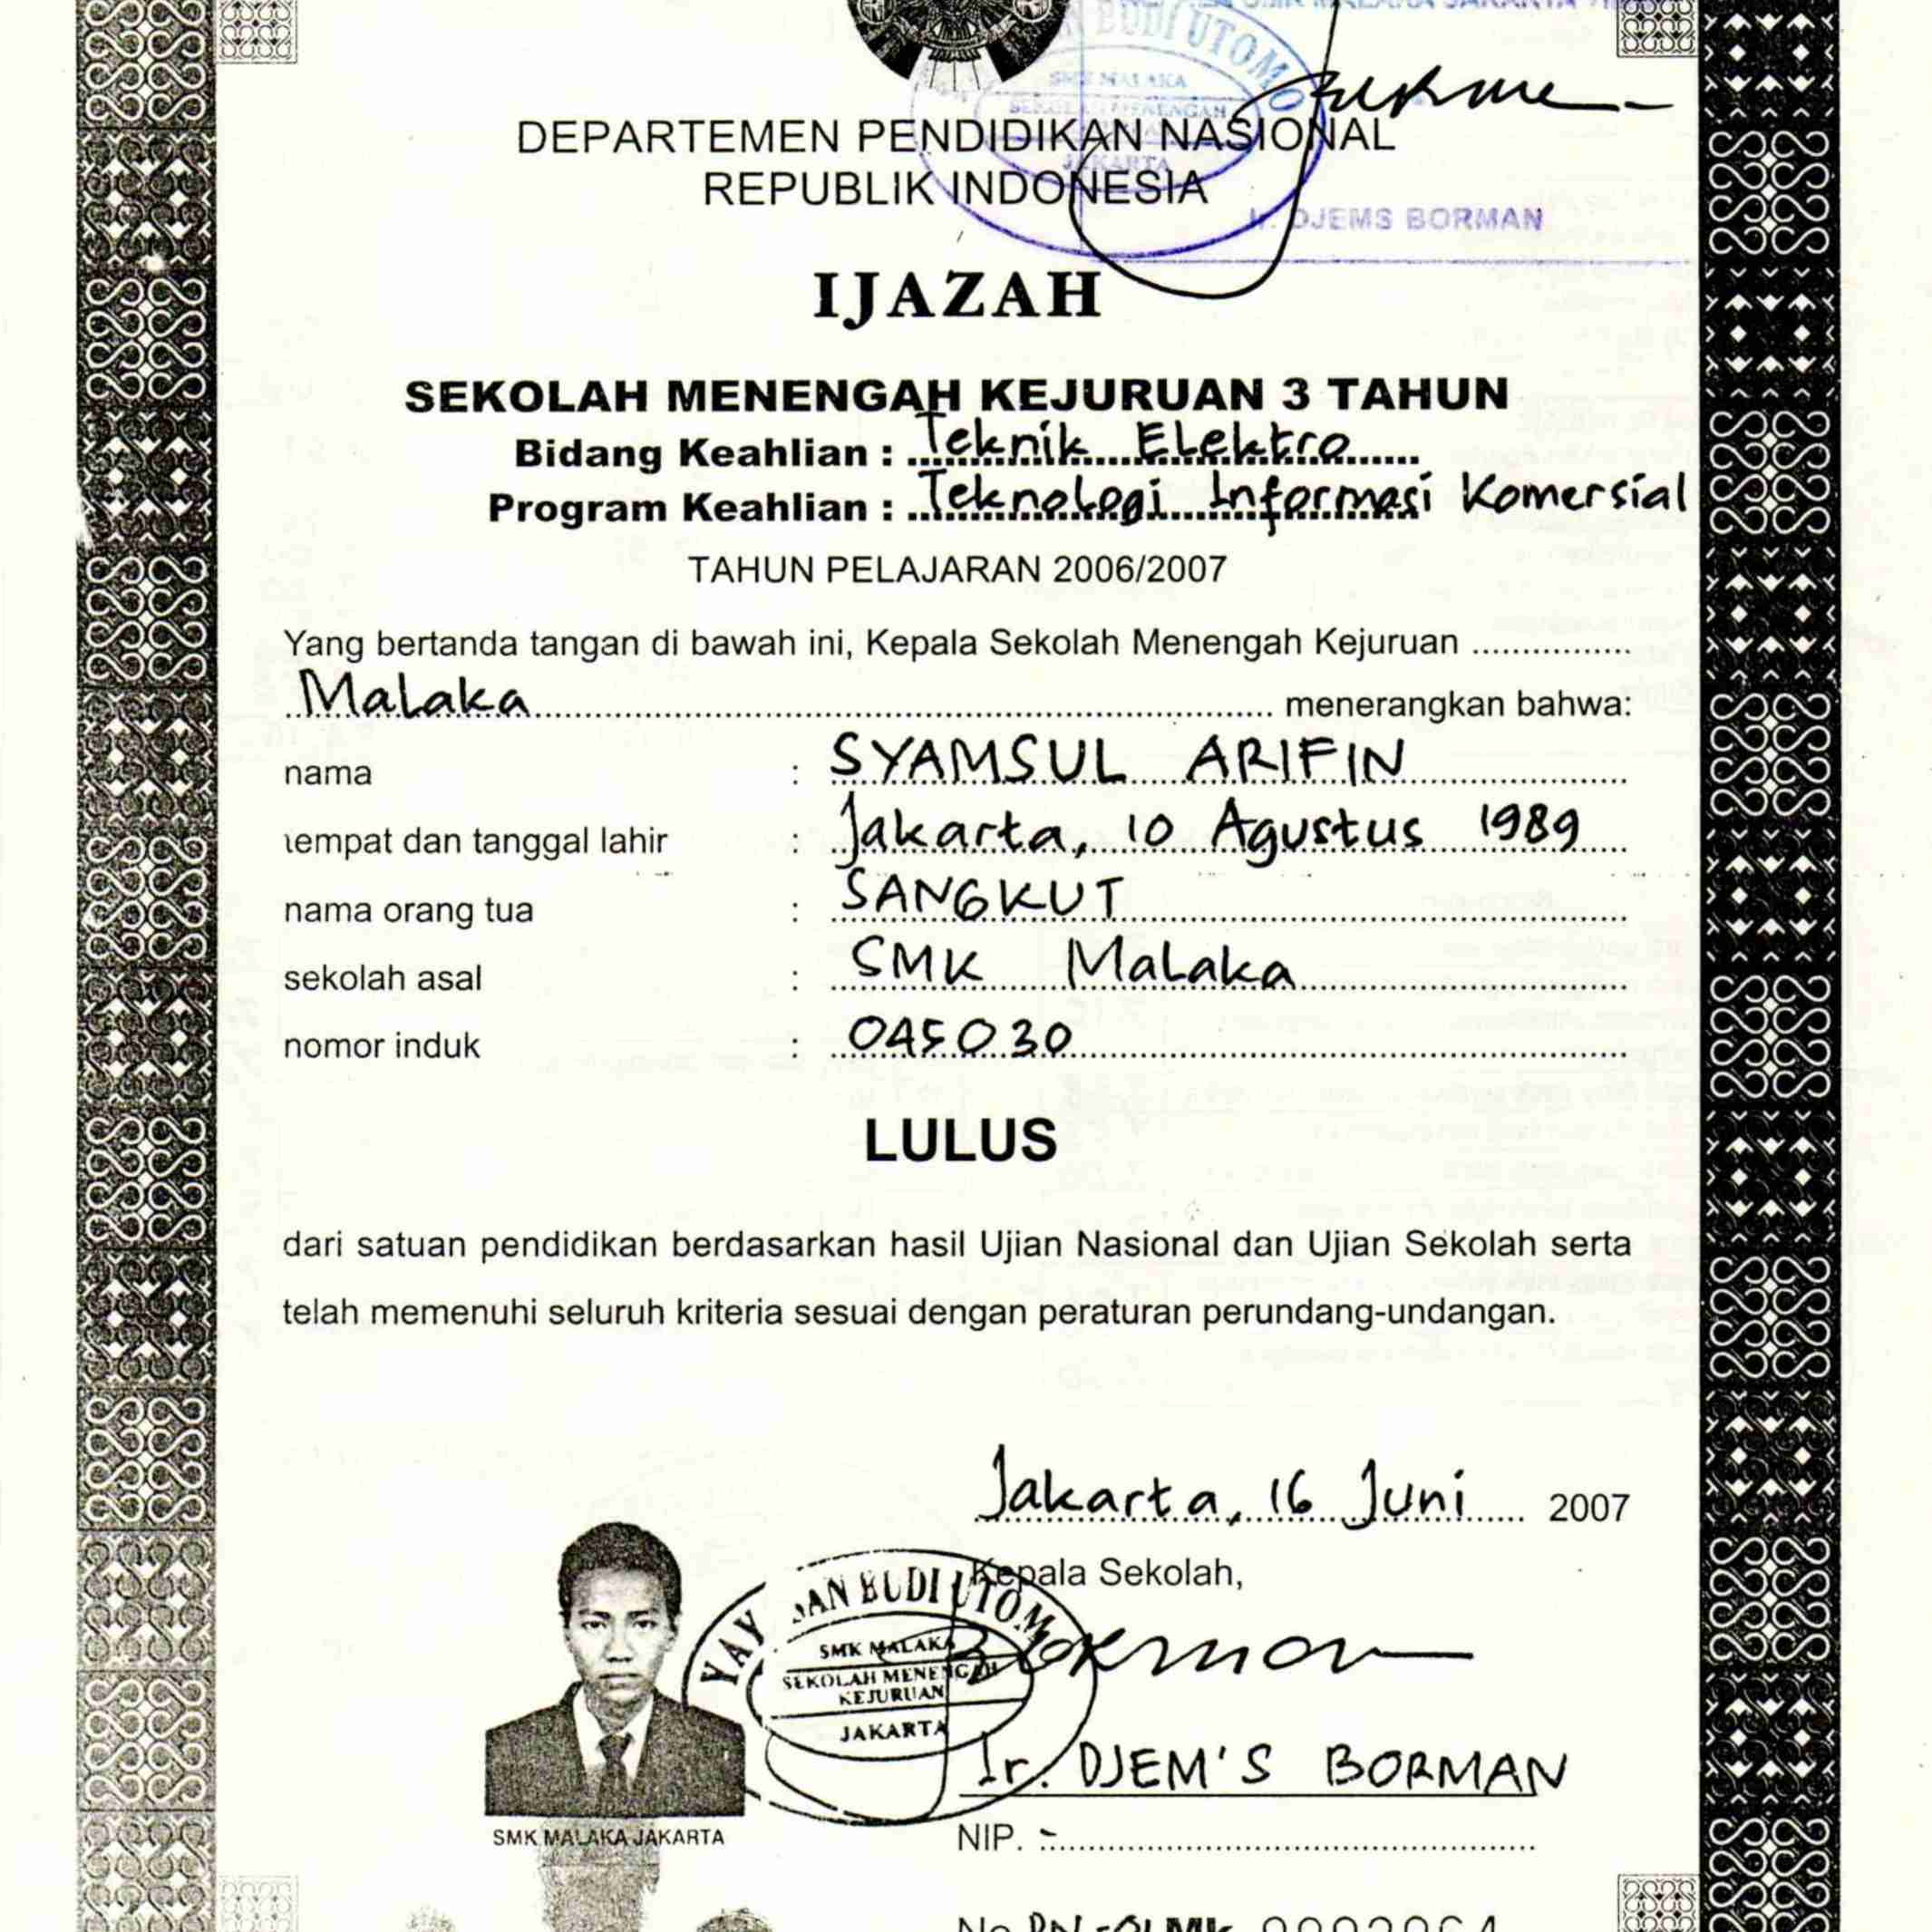 BUDI UTOMO
SMK MALAKA
SEKOLAH MENENGAH
JAKARTA
DEPARTEMEN PENDIDIKAN NASIONAL
REPUBLIK INDONESIA
Ir. DJEMS BORMAN
IJAZAH
SEKOLAH MENENGAH KEJURUAN 3 TAHUN
Bidang Keahlian : Teknik Elektro
Program Keahlian : Teknologi Informasi Komersial
TAHUN PELAJARAN 2006/2007
Yang bertanda tangan di bawah ini, Kepala Sekolah Menengah Kejuruan
Malaka menerangkan bahwa:
nama : SYAMSUL ARIFIN
tempat dan tanggal lahir : Jakarta, 10 Agustus 1989
nama orang tua : SANGKUT
sekolah asal : SMK Malaka
nomor induk : 045030
LULUS
dari satuan pendidikan berdasarkan hasil Ujian Nasional dan Ujian Sekolah serta
telah memenuhi seluruh kriteria sesuai dengan peraturan perundang-undangan.
Jakarta, 16 Juni 2007
Kepala Sekolah,
BUDI UTOMO
SMK MALAKA
SEKOLAH MENENGAH
KEJURUAN
JAKARTA
Borman
Ir. DJEM'S BORMAN
SMK MALAKA JAKARTA
NIP. -